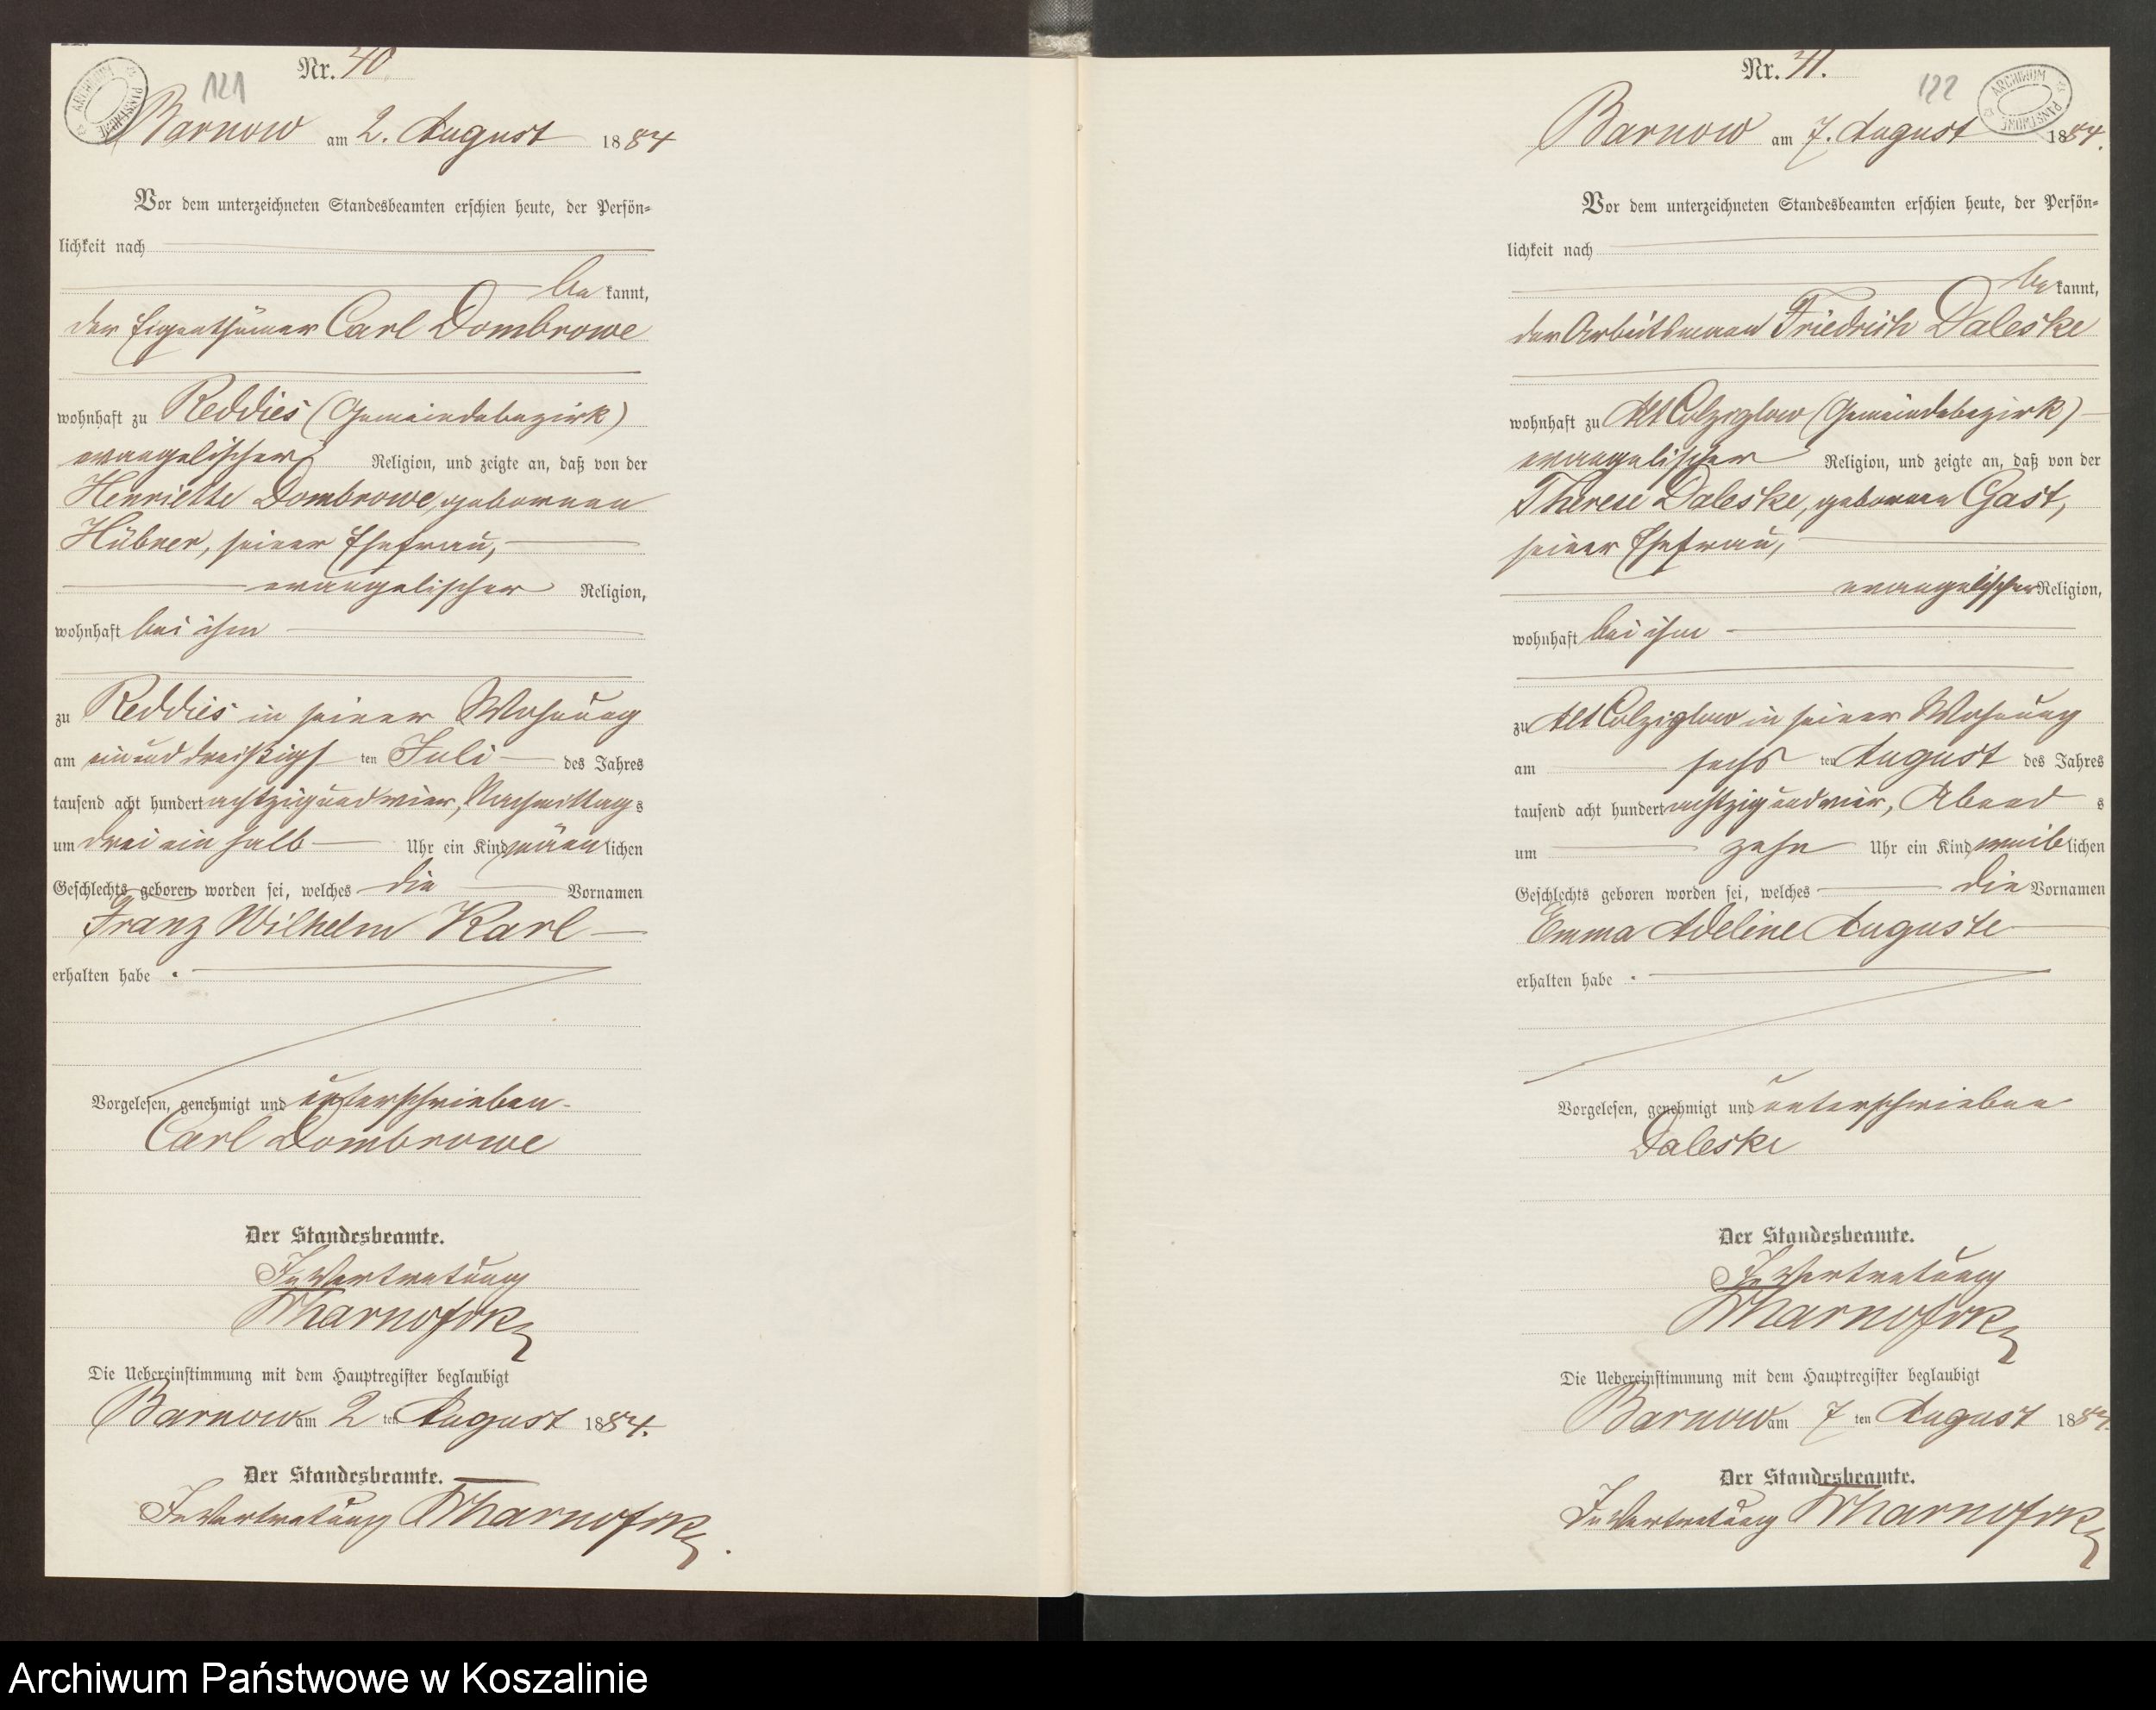 Nr. 40
121
ARCHIWUM PAŃSTWOWE
Barnow am 2. August 1884
Vor dem unterzeichneten Standesbeamten erschien heute, der Persön-
lichkeit nach
be kannt,
der Eigenthümer Carl Dombrowe
wohnhaft zu Reddies (Gemeindebezirk)
evangelischer Religion, und zeigte an, daß von der
Henriette Dombrowe, geborenen
Hübner, seiner Ehefrau,
evangelischer Religion,
wohnhaft bei ihm
zu Reddies in seiner Wohnung
am einunddreißigs ten Juli des Jahres
tausend acht hundert achtzig und vier, Nachmittag s
um drei ein halb Uhr ein Kind männ lichen
Geschlechts geboren worden sei, welches die Vornamen
Franz Wilhelm Karl
erhalten habe.
Vorgelesen, genehmigt und unterschrieben
Carl Dombrowe
Der Standesbeamte.
In Vertretung
Die Uebereinstimmung mit dem Hauptregister beglaubigt
Barnow am 2 ten August 1884.
Der Standesbeamte.
In Vertretung
Nr. 41.
122
ARCHIWUM PAŃSTWOWE
Barnow am 7. August 1884.
Vor dem unterzeichneten Standesbeamten erschien heute, der Persön-
lichkeit nach
be kannt,
der Arbeitsmann Friedrich Daleske
wohnhaft zu Alt Colziglow (Gemeindebezirk)
evangelischer Religion, und zeigte an, daß von der
Therese Daleske, geborenen Gast,
seiner Ehefrau,
evangelischer Religion,
wohnhaft bei ihm
zu Alt Colziglow in seiner Wohnung
am sechs ten August des Jahres
tausend acht hundert achtzig und vier, Abend s
um zehn Uhr ein Kind weib lichen
Geschlechts geboren worden sei, welches die Vornamen
Emma Adeline Auguste
erhalten habe.
Vorgelesen, genehmigt und unterschrieben
Daleske
Der Standesbeamte.
In Vertretung
Die Uebereinstimmung mit dem Hauptregister beglaubigt
Barnow am 7 ten August 1884.
Der Standesbeamte.
In Vertretung
Archiwum Państwowe w Koszalinie